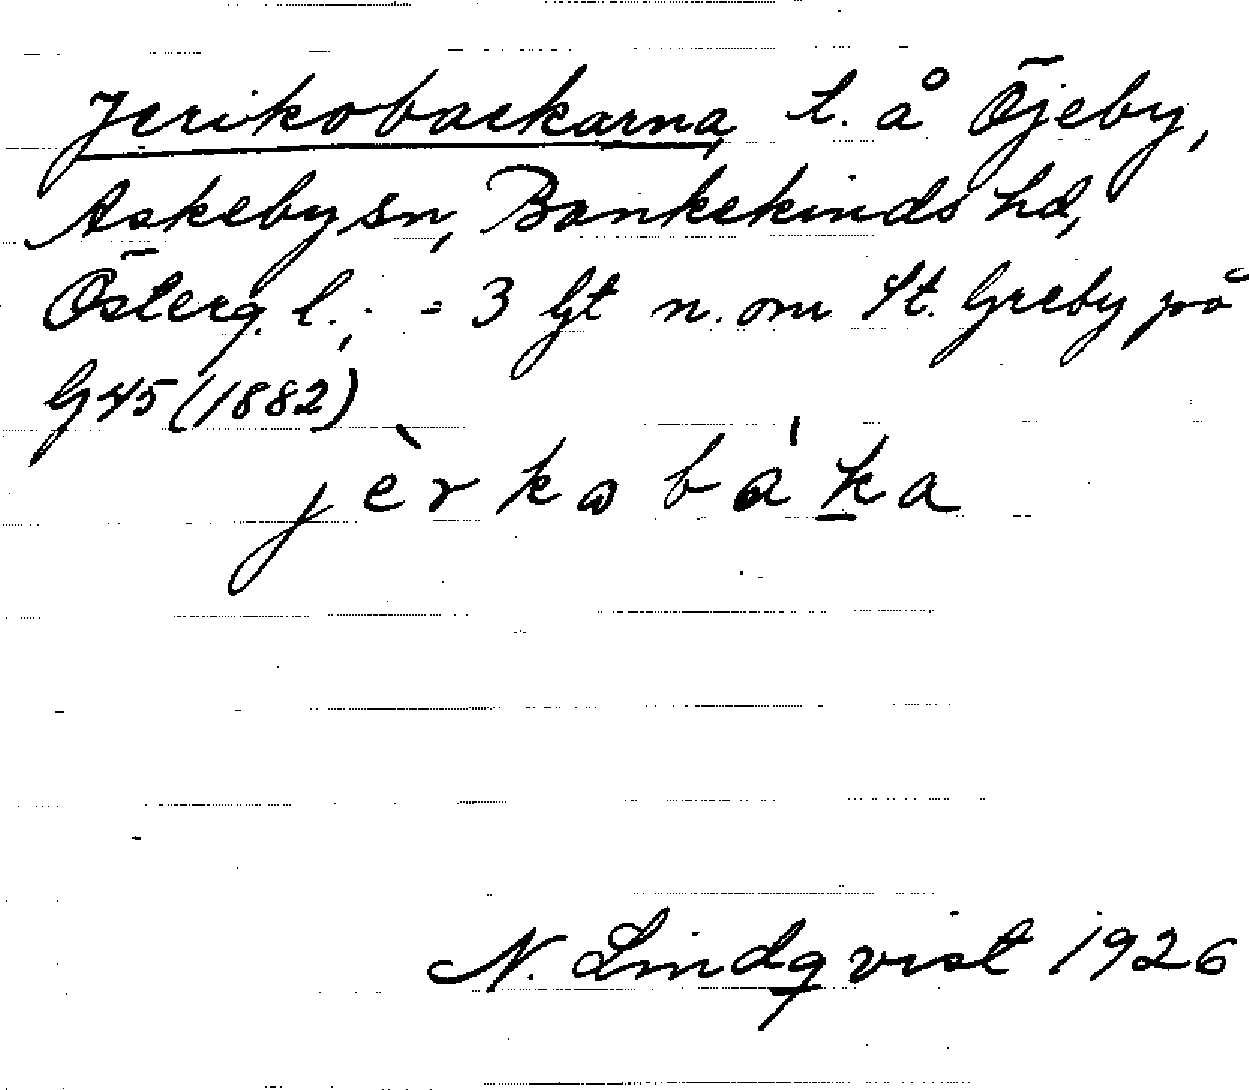 Jerikobackarna, t. å Öjeby,
Askeby sn, Bankekinds hd,
Österg. l.; = 3 lgt n. om St. Greby på
G 45 (1882)
jèrkobáka
N. Lindqvist 1926